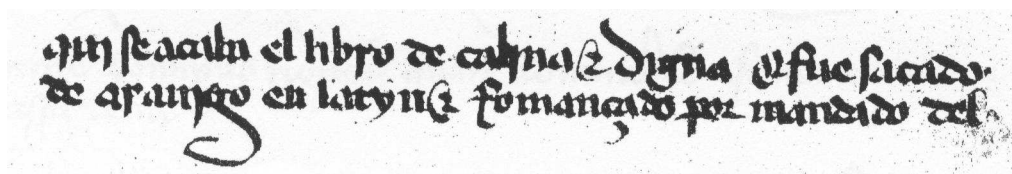 aqui se acaba el libro de calina & digna q̃ fue sacado
de arauigo en latyn & rromançado por mandado del